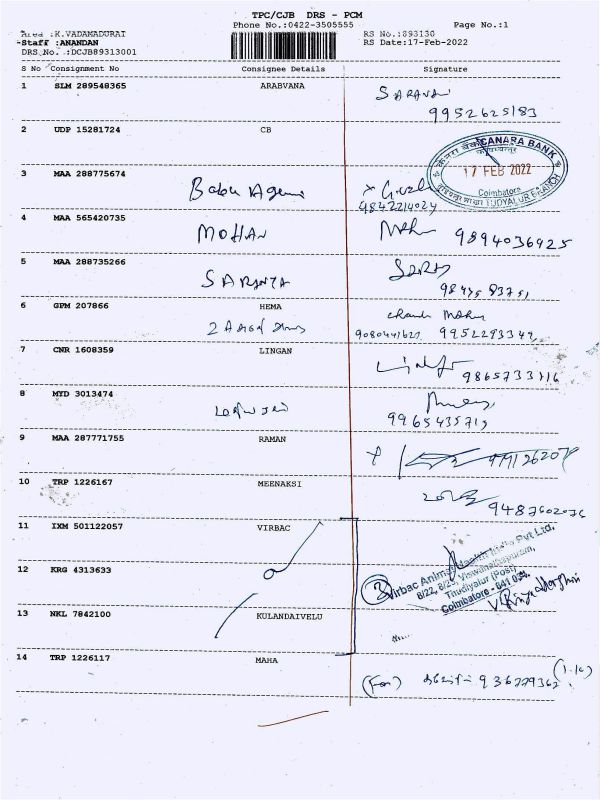 TPC/CJB DRS - PCM
Phone No.:0422-3505555
Page No.:1
Area :K.VADAMADURAI
Staff :ANANDAN
DRS No. :DCJB89313001
RS No.:893130
RS Date:17-Feb-2022
S No Consignment No Consignee Details Signature
1 SLM 289548365 ARABVANA
9952625183
2 UDP 15281724 CB
CANARA BANK
17 FEB 2022
Coimbatore
TUDIYALUR BRANCH
3 MAA 288775674
Babu Agency
9842214024
4 MAA 565420735
MOHAN
9894036925
5 MAA 288735266
SARANYA
6 GPM 207866 HEMA
9952293342
7 CNR 1608359 LINGAN
9865733116
8 MYD 3013474
9965435719
9 MAA 287771755 RAMAN
10 TRP 1226167 MEENAKSI
9487602076
11 IXM 501122057 VIRBAC
12 KRG 4313633
Virbac Animal Health India Pvt Ltd.
8/22, 8/23, Viswanathapuram,
Thudiyalur (Post)
Coimbatore - 641 034.
13 NKL 7842100 KULANDAIVELU
14 TRP 1226117 MAHA
(For)